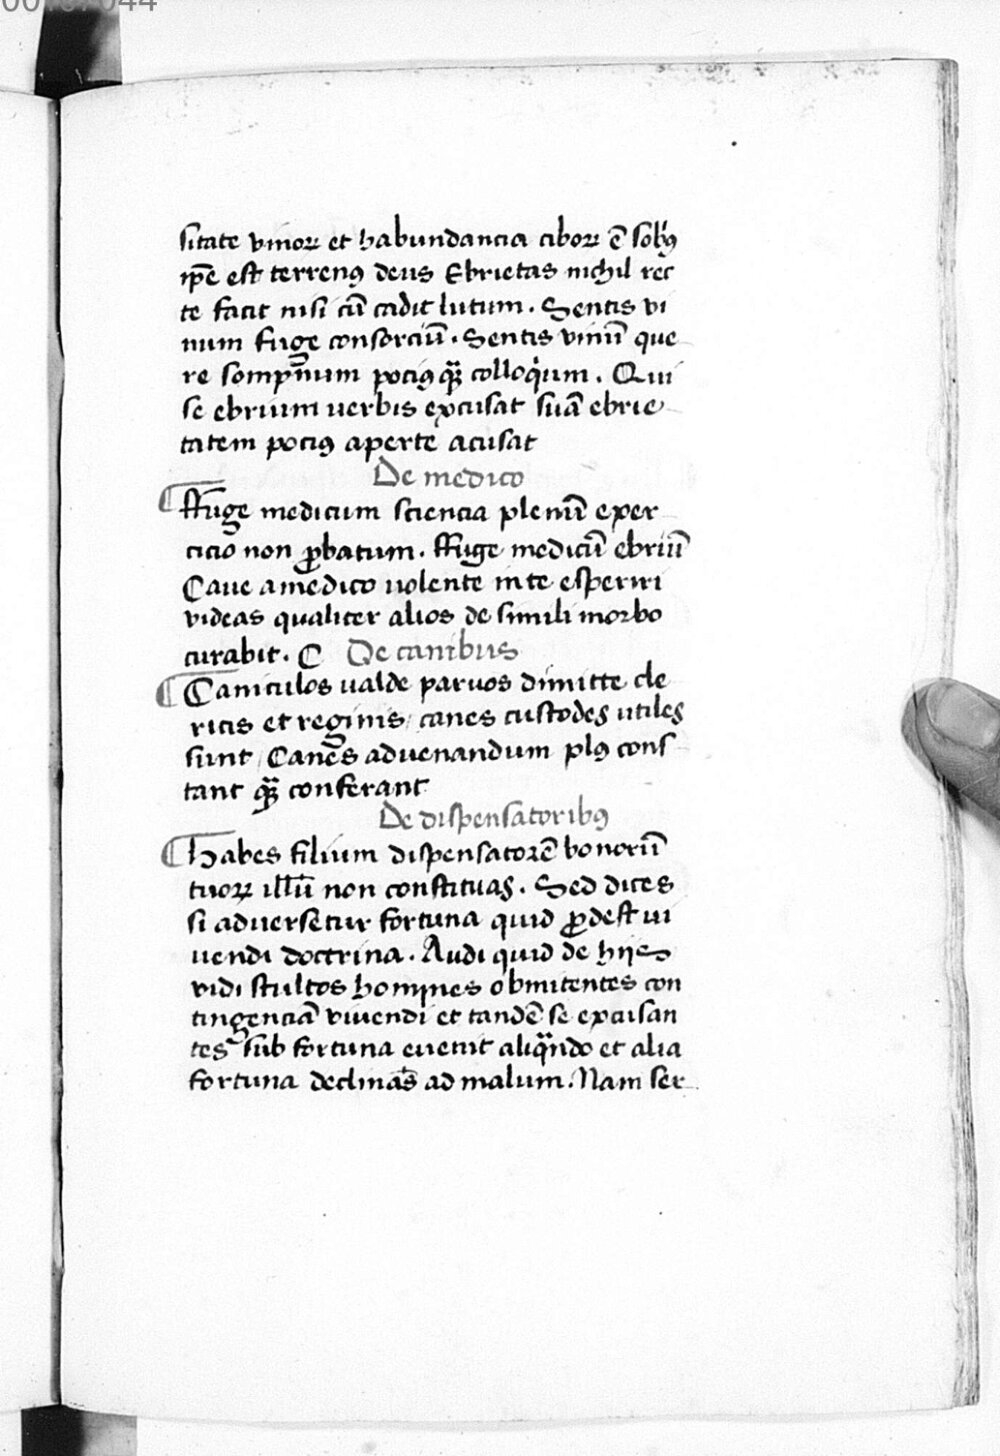 sitate vinoꝝ et habundancia ciboꝝ ē sobꝰ
ip̄e est terrenꝰ deus Ebrietas nichil rec
te facit nisi cū cadit lutum. Sentis vi
num fuge consorciū. Sentis vinū que
re sompnum pociꝰ qᷓꝫ colloqͥum. Qui
se ebrium uerbis excusat suā ebrie
tatem pociꝰ aperte acusat
De medico
Ffuge medicum sciencia plenū exer
cicio non ꝓbatum. Ffuge medicū ebriū
Caue amedico uolente inte esperiri
videas qualiter alios de simili morbo
curabit. C De canibus
Caniculos ualde paruos dimitte cle
ricis et reginis / canes custodes utiles
sunt / Canes aduenandum plꝰ cons
tant qᷓꝫ conferant
De dispensatoribꝰ
Habes filium dispensatorē bonorū
tuoꝝ illū non constituas. Sed dices
si aduersetur fortuna quid ꝓdest ui
uendi doctrina. Audi quid de hijs
vidi stultos homines obmitentes con
tingenciā viuendi et tandē se excusan
tes sub fortuna euenit aliqᷓndo et alia
fortuna declinās ad malum. Nam ser